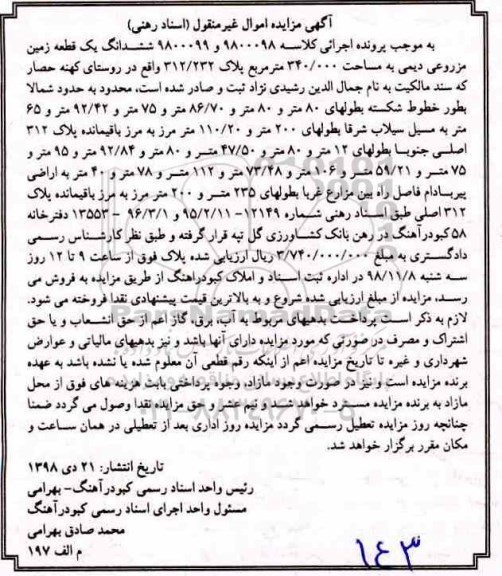 آگهی مزایده اموال غیرمنقول (اسناد رهنی)
به موجب پرونده اجرائی کلاسه ۹۸۰۰۰۹۸ و ۹۸۰۰۰۹۹ ششدانگ یک قطعه زمین
مزروعی دیمی به مساحت ۳۴۰/۰۰۰ مترمربع پلاک ۳۱۲/۲۳۲ واقع در روستای کهنه حصار
که سند مالکیت به نام جمال الدین رشیدی نژاد ثبت و صادر شده است، محدود به حدود شمالا
بطور خطوط شکسته بطولهای ۸۰ متر و ۸۰ متر و ۸۶/۷۰ متر و ۷۵ متر و ۹۲/۴۲ متر و ۶۵
متر به مسیل سیلاب شرقا بطولهای ۲۰۰ متر و ۱۱۰/۲۰ متر مرز به مرز باقیمانده پلاک ۳۱۲
اصلی جنوبا بطولهای ۱۲ متر و ۸۰ متر و ۴۷/۵۰ متر و ۸۰ متر و ۹۲/۸۴ متر و ۹۵ متر و
۷۵ متر و ۵۹/۲۱ متر و ۱۰۶ متر و ۷۳/۴۸ متر و ۱۱۲ متر و ۷۸ متر و ۴۰ متر به اراضی
پیربادام فاصل راه بین مزارع غربا بطولهای ۲۳۵ متر و ۲۰۰ متر مرز به مرز باقیمانده پلاک
۳۱۲ اصلی طبق اسناد رهنی شماره ۱۲۱۴۹- ۹۵/۲/۱۱ و ۹۶/۳/۱ - ۱۳۵۵۳ دفترخانه
۵۸ کبودرآهنگ در رهن بانک کشاورزی گل تپه قرار گرفته و طبق نظر کارشناس رسمی
دادگستری به مبلغ ۳/۷۴۰/۰۰۰/۰۰۰ ریال ارزیابی شده پلاک فوق از ساعت ۹ تا ۱۲ روز
سه شنبه ۹۸/۱۱/۸ در اداره ثبت اسناد و املاک کبودراهنگ از طریق مزایده به فروش می
رسد، مزایده از مبلغ ارزیابی شده شروع و به بالاترین قیمت پیشنهادی نقدا فروخته می شود.
لازم به ذکر است پرداخت بدهیهای مربوط به آب، برق، گاز اعم از حق انشعاب و یا حق
اشتراک و مصرف در صورتی که مورد مزایده دارای آنها باشد و نیز بدهیهای مالیاتی و عوارض
شهرداری و غیره تا تاریخ مزایده اعم از اینکه رقم قطعی آن معلوم شده یا نشده باشد به عهده
برنده مزایده است و نیز در صورت وجود مازاد، وجوه پرداختی بابت هزینه های فوق از محل
مازاد به برنده مزایده مسترد خواهد شد و نیم عشر و حق مزایده نقدا وصول می گردد ضمنا
چنانچه روز مزایده تعطیل رسمی گردد مزایده روز اداری بعد از تعطیلی در همان ساعت و
مکان مقرر برگزار خواهد شد.
تاریخ انتشار: ۲۱ دی ۱۳۹۸
رئیس واحد اسناد رسمی کبودرآهنگ- بهرامی
مسئول واحد اجرای اسناد رسمی کبودرآهنگ
محمد صادق بهرامی
م الف ۱۹۷
۱۴۳